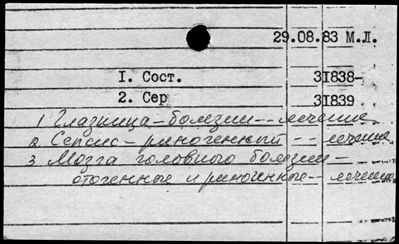 29.08.83 М.Л.
1. Сост. 31838-
2. Сер 31839
1 Глазница-болезни--лечение
2 Сепсис-риногенный--лечение
3 Мозга головного болезни-
отогенные и риногенные--лечение